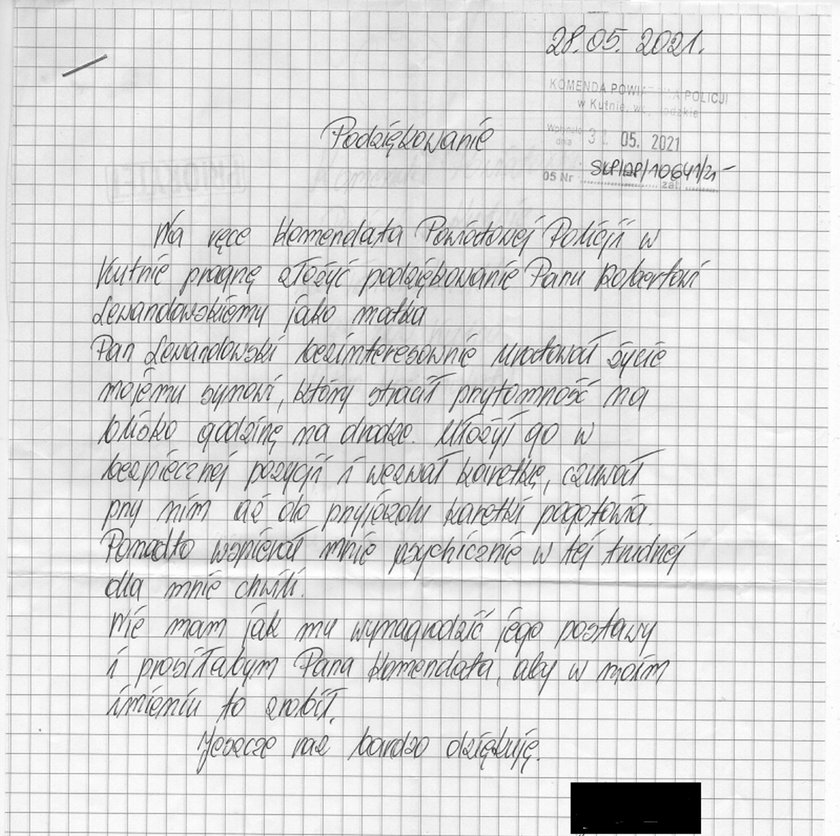 28.05.2021.
KOMENDA POWIATOWA POLICJI
w Kutnie, woj. łódzkie
Wpłynęło
dnia 31. 05. 2021
05 Nr SKP/OP/10641/21 zał.
Podziękowanie
Na ręce Komendata Powiatowej Policji w
Kutnie pragnę złożyć podziękowanie Panu Robertowi
Lewandowskiemu jako matka
Pan Lewandowski bezinteresownie uratował życie
mojemu synowi, który stracił przytomność na
blisko godzinę na drodze. Ułożył go w
bezpiecznej pozycji i wezwał karetkę, czuwał
przy nim aż do przyjazdu karetki pogotowia.
Ponadto wspierał mnie psychicznie w tej trudnej
dla mnie chwili.
Nie mam jak mu wynagrodzić jego postawy
i prosiłabym Pana Komendata, aby w moim
imieniu to zrobił.
Jeszcze raz bardzo dziękuję.